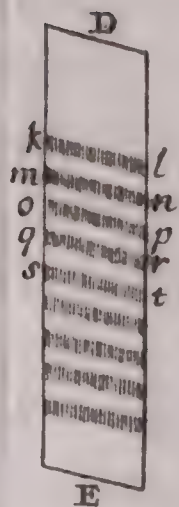 D
k l
m n
o p
q r
s t
E